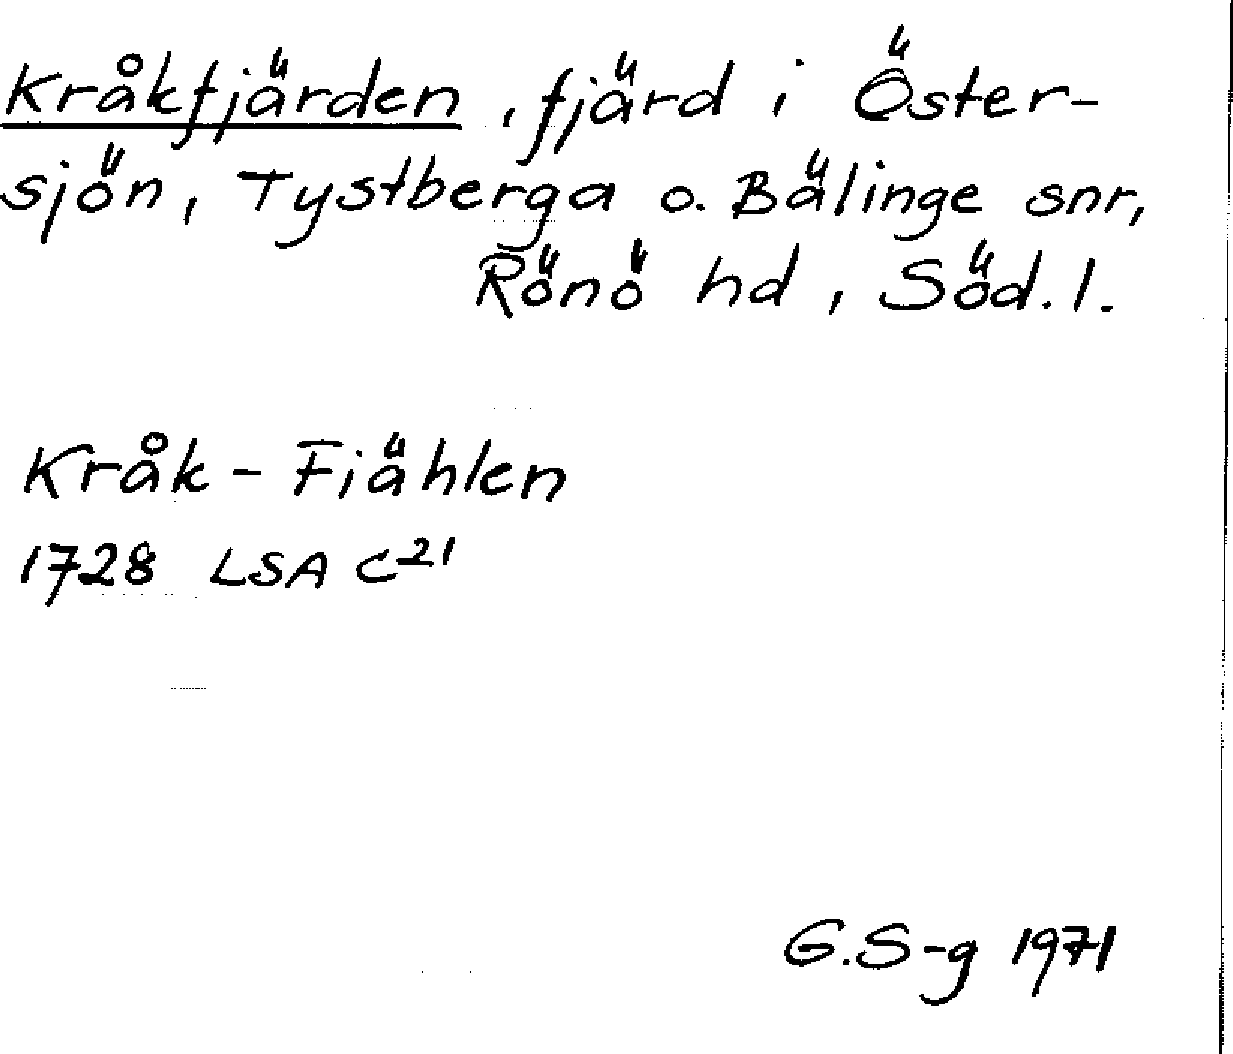 Kråkfjärden, fjärd i Öster-
sjön, Tystberga o. Bälinge snr,
Rönö hd, Söd. l.
Kråk - Fiählen
1728 LSA C²¹
G.S-g 1971